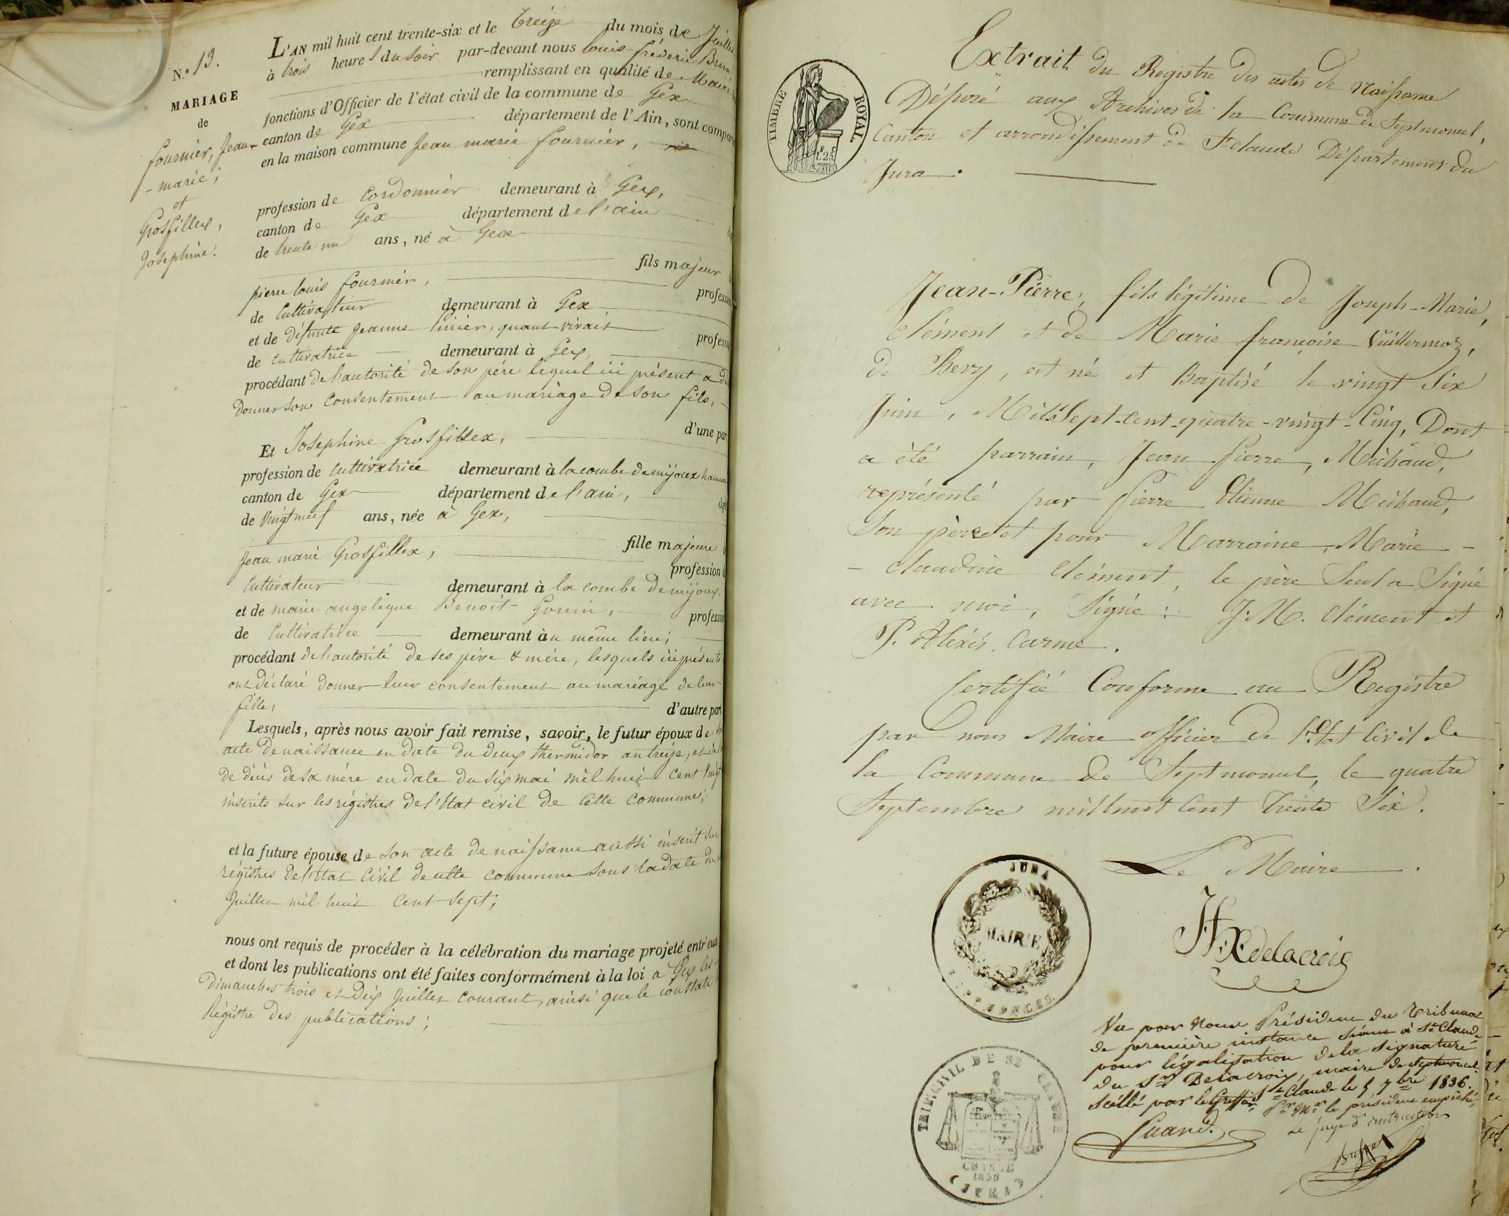 N.o 13.
MARIAGE
de
fournier, Jean-
-marie;
et
Grosfillex,
Josephine.
L'AN mil huit cent trente-six et le treize du mois de Juillet
à trois heures du soir par-devant nous louis frédéric
remplissant en qualité de Maire
fonctions d'Officier de l'état civil de la commune de Gex
canton de Gex département de l'Ain, sont compar
en la maison commune Jean marie fournier,
profession de Cordonnier demeurant à Gex,
canton de Gex département de l'ain
de trente un ans, né à Gex
fils majeur
pierre louis fournier, profess
de Cultivateur demeurant à Gex
et de défunte jeanne quant vivait profess
de Cultivatrice demeurant à Gex,
procédant de l'autorité de son père lequel ici présent a dé
Donner son consentement au mariage de son fils,
d'une par
Et Josephine Grosfillex,
profession de Cultivatrice demeurant à la combe de mijoux
canton de Gex département de l'ain,
de vingt neuf ans, née à Gex,
fille majeure
Jean marie Grosfillex, profession
Cultivateur demeurant à la combe de mijoux
et de marie angelique Benoit-Gonin, profess
de Cultivatrice demeurant au même lieu;
procédant de l'autorité de ses père & mère, lesquels ici présents
ont déclaré donner leur consentement au mariage de leur
fille, d'autre part
Lesquels, après nous avoir fait remise, savoir, le futur époux de
acte de naissance en date du deux thermidor an treize, et
de décès de sa mère en date du six mai mil huit cent vingt
inscrits sur les régistres de l'Etat civil de cette commune,
et la future épouse de son acte de naissance aussi inscrit sur
régistres de l'Etat Civil de cette commune sous la date du
juillet mil huit cent sept;
nous ont requis de procéder à la célébration du mariage projeté entr'eux
et dont les publications ont été faites conformément à la loi à Gex les
Dimanches trois et Dix juillet courant, ainsi que le constate
Régistre des publications;
TIMBRE ROYAL
Extrait du Registre des actes de naissance
Déposé aux Archives de la Commune de Septmoncel,
Canton et arrondissement de St Claude Département du
Jura.
Jean-Pierre, fils légitime de Joseph-Marie,
Clément et de Marie françoise Vuillermoz,
de , est né et Baptisé le vingt Six
Juin, Mil Sept-cent-quatre-vingt-Cinq, Dont
a été parrain, Jean Pierre, Michaud,
représenté par Pierre Etienne Michaud,
Son père et pour Marraine, Marie-
-Claudine Clément, le père Seul a Signé
avec moi, Signé: J. M. Clément et
P. Alexis, Carme.
Certifié Conforme au Registre
par nous Maire officier de l'Etat Civil de
la Commune de Septmoncel, le quatre
Septembre mil huit Cent Trente Six.
Le Maire
JURA
MAIRIE
Delacroix
Vu par Nous Président du Tribunal
de première instance séant à St Claude
pour légalisation de la signature
du Sr Delacroix, maire de Septmoncel
Scellé par le Greffier St Claude le 5 7bre 1836.
Pr Mr le président empêché
Le juge d'instruction
TRIB. CIVIL DE ST CLAUDE
CHARTE
1830
(JURA)